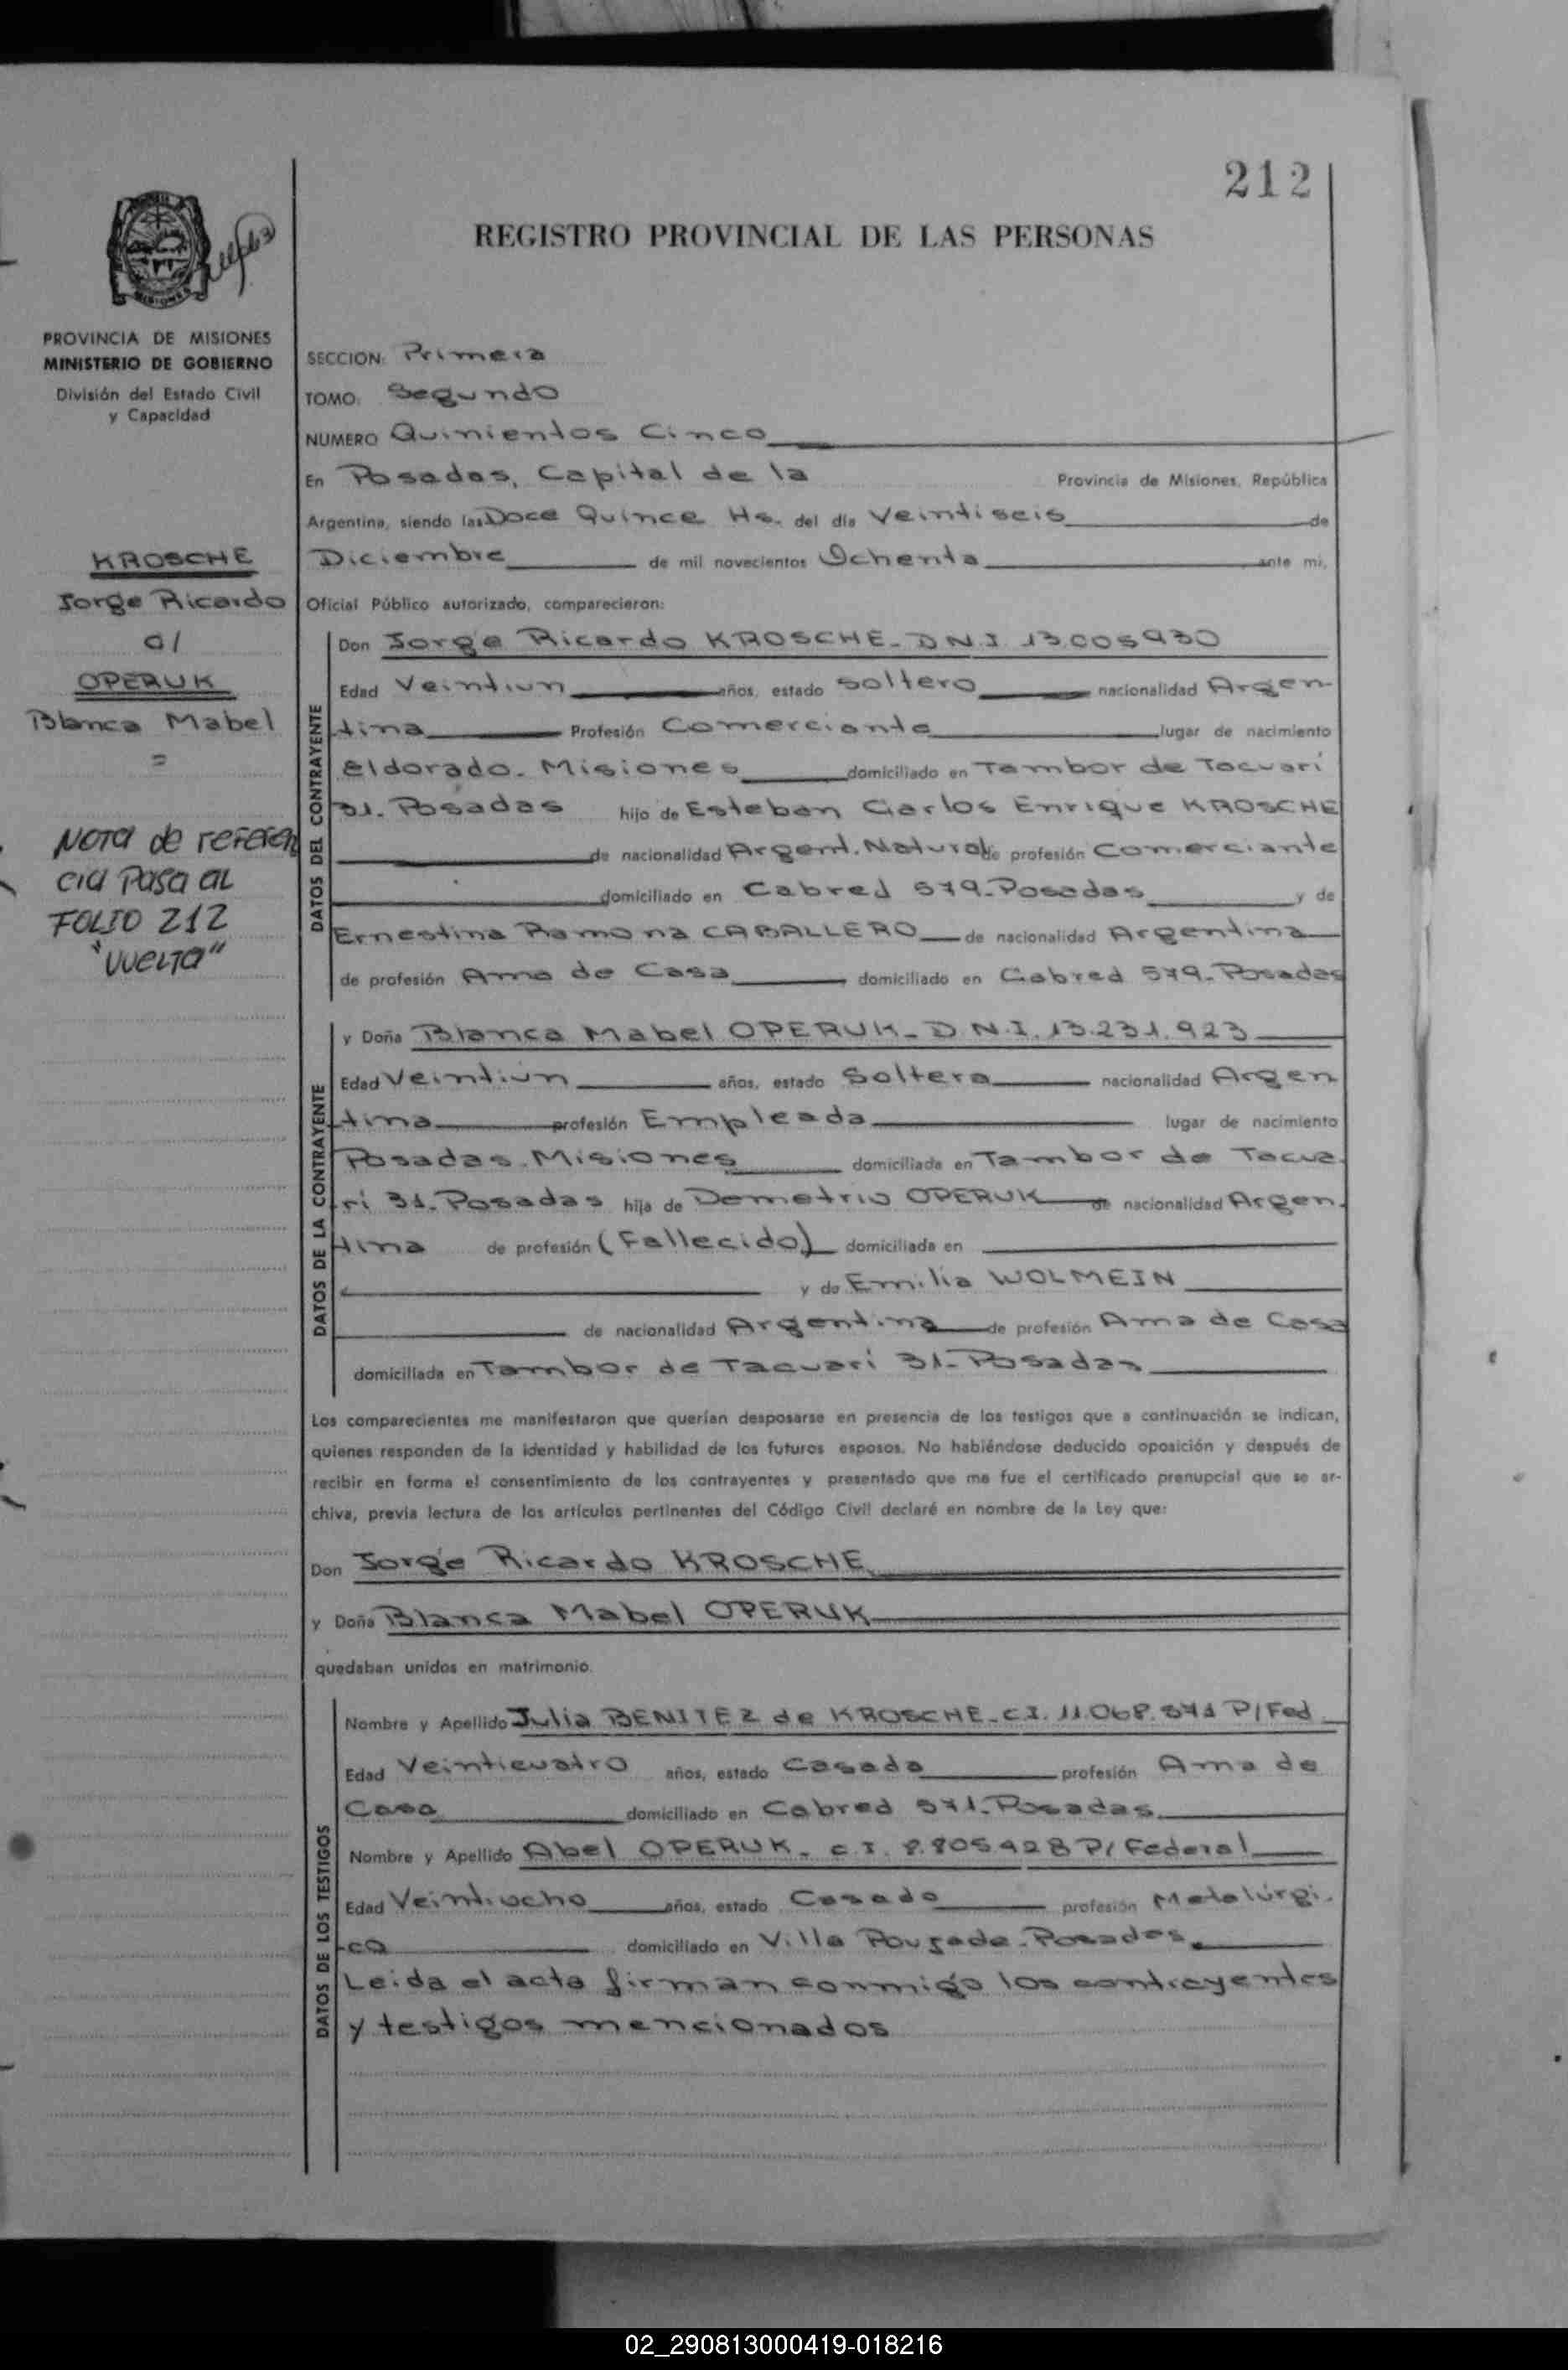 212
REGISTRO PROVINCIAL DE LAS PERSONAS
MISIONES
PROVINCIA DE MISIONES
MINISTERIO DE GOBIERNO
División del Estado Civil
y Capacidad
KROSCHE
Jorge Ricardo
c/
OPERUK
Blanca Mabel
=
NOTA de referen
cia Pasa al
FOLIO 212
"VUELTA"
SECCION: Primera
TOMO: Segundo
NUMERO Quinientos Cinco
En Posadas, Capital de la Provincia de Misiones, República
Argentina, siendo las Doce Quince Hs. del día Veintiseis de
Diciembre de mil novecientos Ochenta ante mi,
Oficial Público autorizado, comparecieron:
DATOS DEL CONTRAYENTE
Don Jorge Ricardo KROSCHE_ D N.I 13.005930
Edad Veintiun años, estado soltero nacionalidad Argen-
tina Profesión Comerciante lugar de nacimiento
Eldorado. Misiones domiciliado en Tambor de Tacuarí
31. Posadas hijo de Esteban Carlos Enrique KROSCHE
de nacionalidad Argent. Natural de profesión Comerciante
domiciliado en Cabred 579-Posadas y de
Ernestina Ramona CABALLERO de nacionalidad Argentina
de profesión Ama de Casa domiciliado en Cabred 579-Posadas
DATOS DE LA CONTRAYENTE
y Doña Blanca Mabel OPERUK_ D N.I. 13.231.923
Edad Veintiún años, estado Soltera nacionalidad Argen
tina profesión Empleada lugar de nacimiento
Posadas. Misiones domiciliada en Tambor de Tacua
rí 31. Posadas hija de Demetrio OPERUK de nacionalidad Argen.
tina de profesión (Fallecido) domiciliada en
y de Emilia WOLMEIN
de nacionalidad Argentina de profesión Ama de Casa
domiciliada en Tambor de Tacuarí 31-Posadas
Los comparecientes me manifestaron que querían desposarse en presencia de los testigos que a continuación se indican,
quienes responden de la identidad y habilidad de los futuros esposos. No habiéndose deducido oposición y después de
recibir en forma el consentimiento de los contrayentes y presentado que me fue el certificado prenupcial que se ar-
chiva, previa lectura de los artículos pertinentes del Código Civil declaré en nombre de la Ley que:
Don Jorge Ricardo KROSCHE
y Doña Blanca Mabel OPERUK
quedaban unidos en matrimonio.
DATOS DE LOS TESTIGOS
Nombre y Apellido Julia BENITEZ de KROSCHE_C.I. 11.068.571 P/Fed
Edad Veinticuatro años, estado Casada profesión Ama de
Casa domiciliado en Cabred 571-Posadas
Nombre y Apellido Abel OPERUK_ C.I. 8.805428 P/ Federal
Edad Veintiocho años, estado Casado profesión Metalúrgi.
co domiciliado en Villa Pougade-Posadas
Leida el acta firman conmigo los contrayentes
y testigos mencionados
02_290813000419-018216